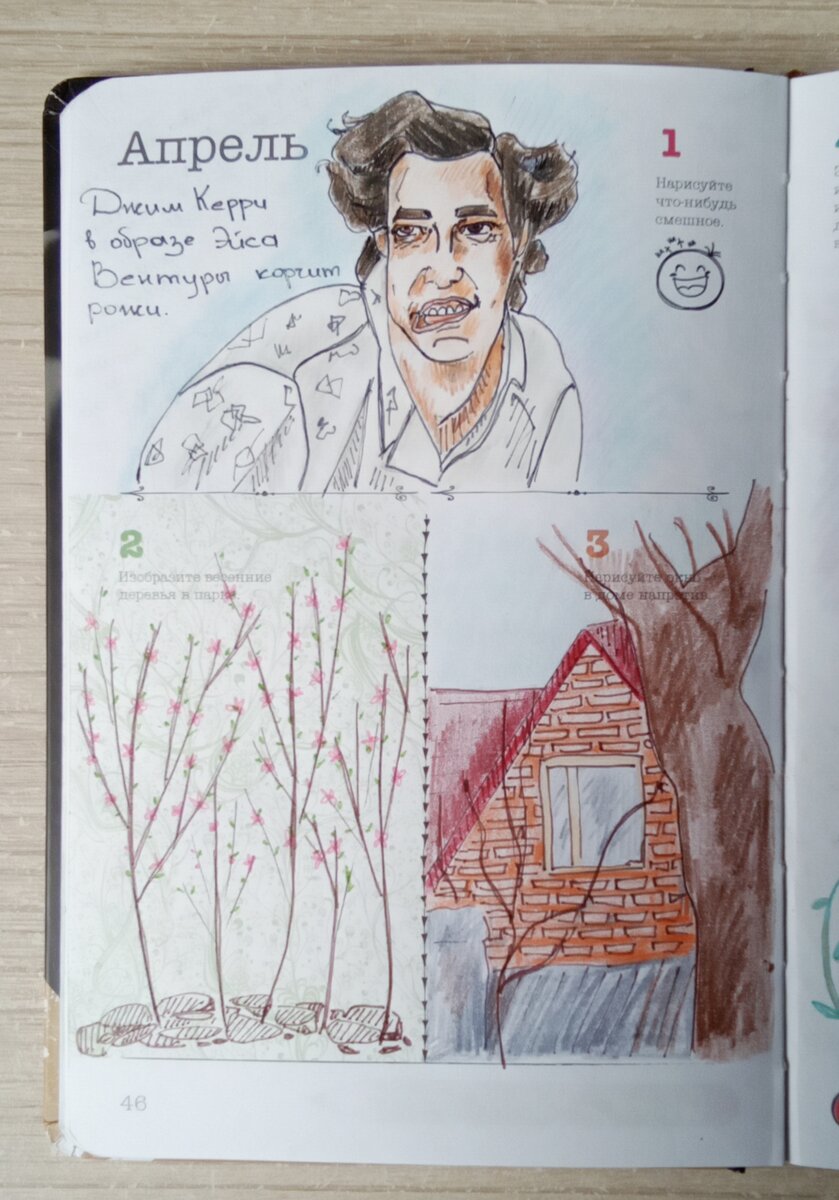 Апрель
Джим Керри
в образе Эйса
Вентуры корчит
рожи.
1
Нарисуйте
что-нибудь
смешное.
2
Изобразите весенние
деревья в парке.
3
Нарисуйте окно
в доме напротив.
46